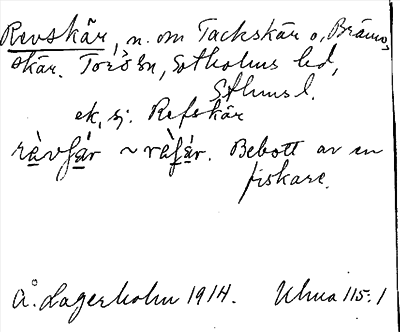 Revskär, n. om Tackskär o. Brännskär. Torö sn, Sotholms hd,
Sthms l.
ek, sj. Refskär
rävʃär ~ räfʃär. Bebott av en
fiskare.
Å. Lagerholm 1914. Ulma 115:1